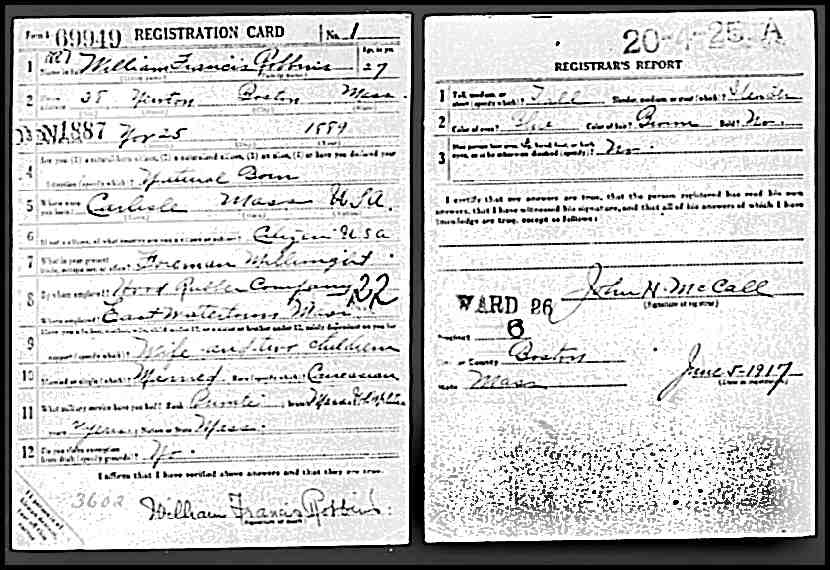 Form 1 69949 REGISTRATION CARD No. 1
1 William Francis Robbins Age, in yrs. 27
2 25 Newton Boston Mass.
3 Nov 25 1889
4 Are you (1) a natural born citizen, (2) a naturalized citizen, (3) an alien, (4) or have you declared your
intention (specify which)? Natural Born
5 Where were you born? Carlisle Mass USA.
6 If not a citizen, of what country are you a citizen or subject? Citizen USA
7 What is your present trade, occupation, or office? Foreman
8 By whom employed? Hood Rubber Company 22
Where employed? East Watertown Mass
9 Have you a father, mother, wife, child under 12, or a sister or brother under 12, solely dependent on you for
support (specify which)? Wife and two children
10 Married or single (which)? Married Race (specify which)? Caucasian
11 What military service have you had? Rank Private; branch
years; Nation or State Mass.
12 Do you claim exemption from draft (specify grounds)? No.
I affirm that I have verified above answers and that they are true.
3602
William Francis Robbins
20-4-25. A
REGISTRAR'S REPORT
1 Tall, medium, or short (specify which)? Tall Slender, medium, or stout (which)? Slender
2 Color of eyes? Blue Color of hair? Brown Bald? No.
3 Has person lost arm, leg, hand, foot, or both eyes, or is he otherwise disabled (specify)? No.
I certify that my answers are true, that the person registered has read his own
answers, that I have witnessed his signature, and that all of his answers of which I have
knowledge are true, except as follows:
John H. McCall
(Signature of registrar)
WARD 26
Precinct 6
City or County Boston
State Mass
June 5-1917
(Date of registration)